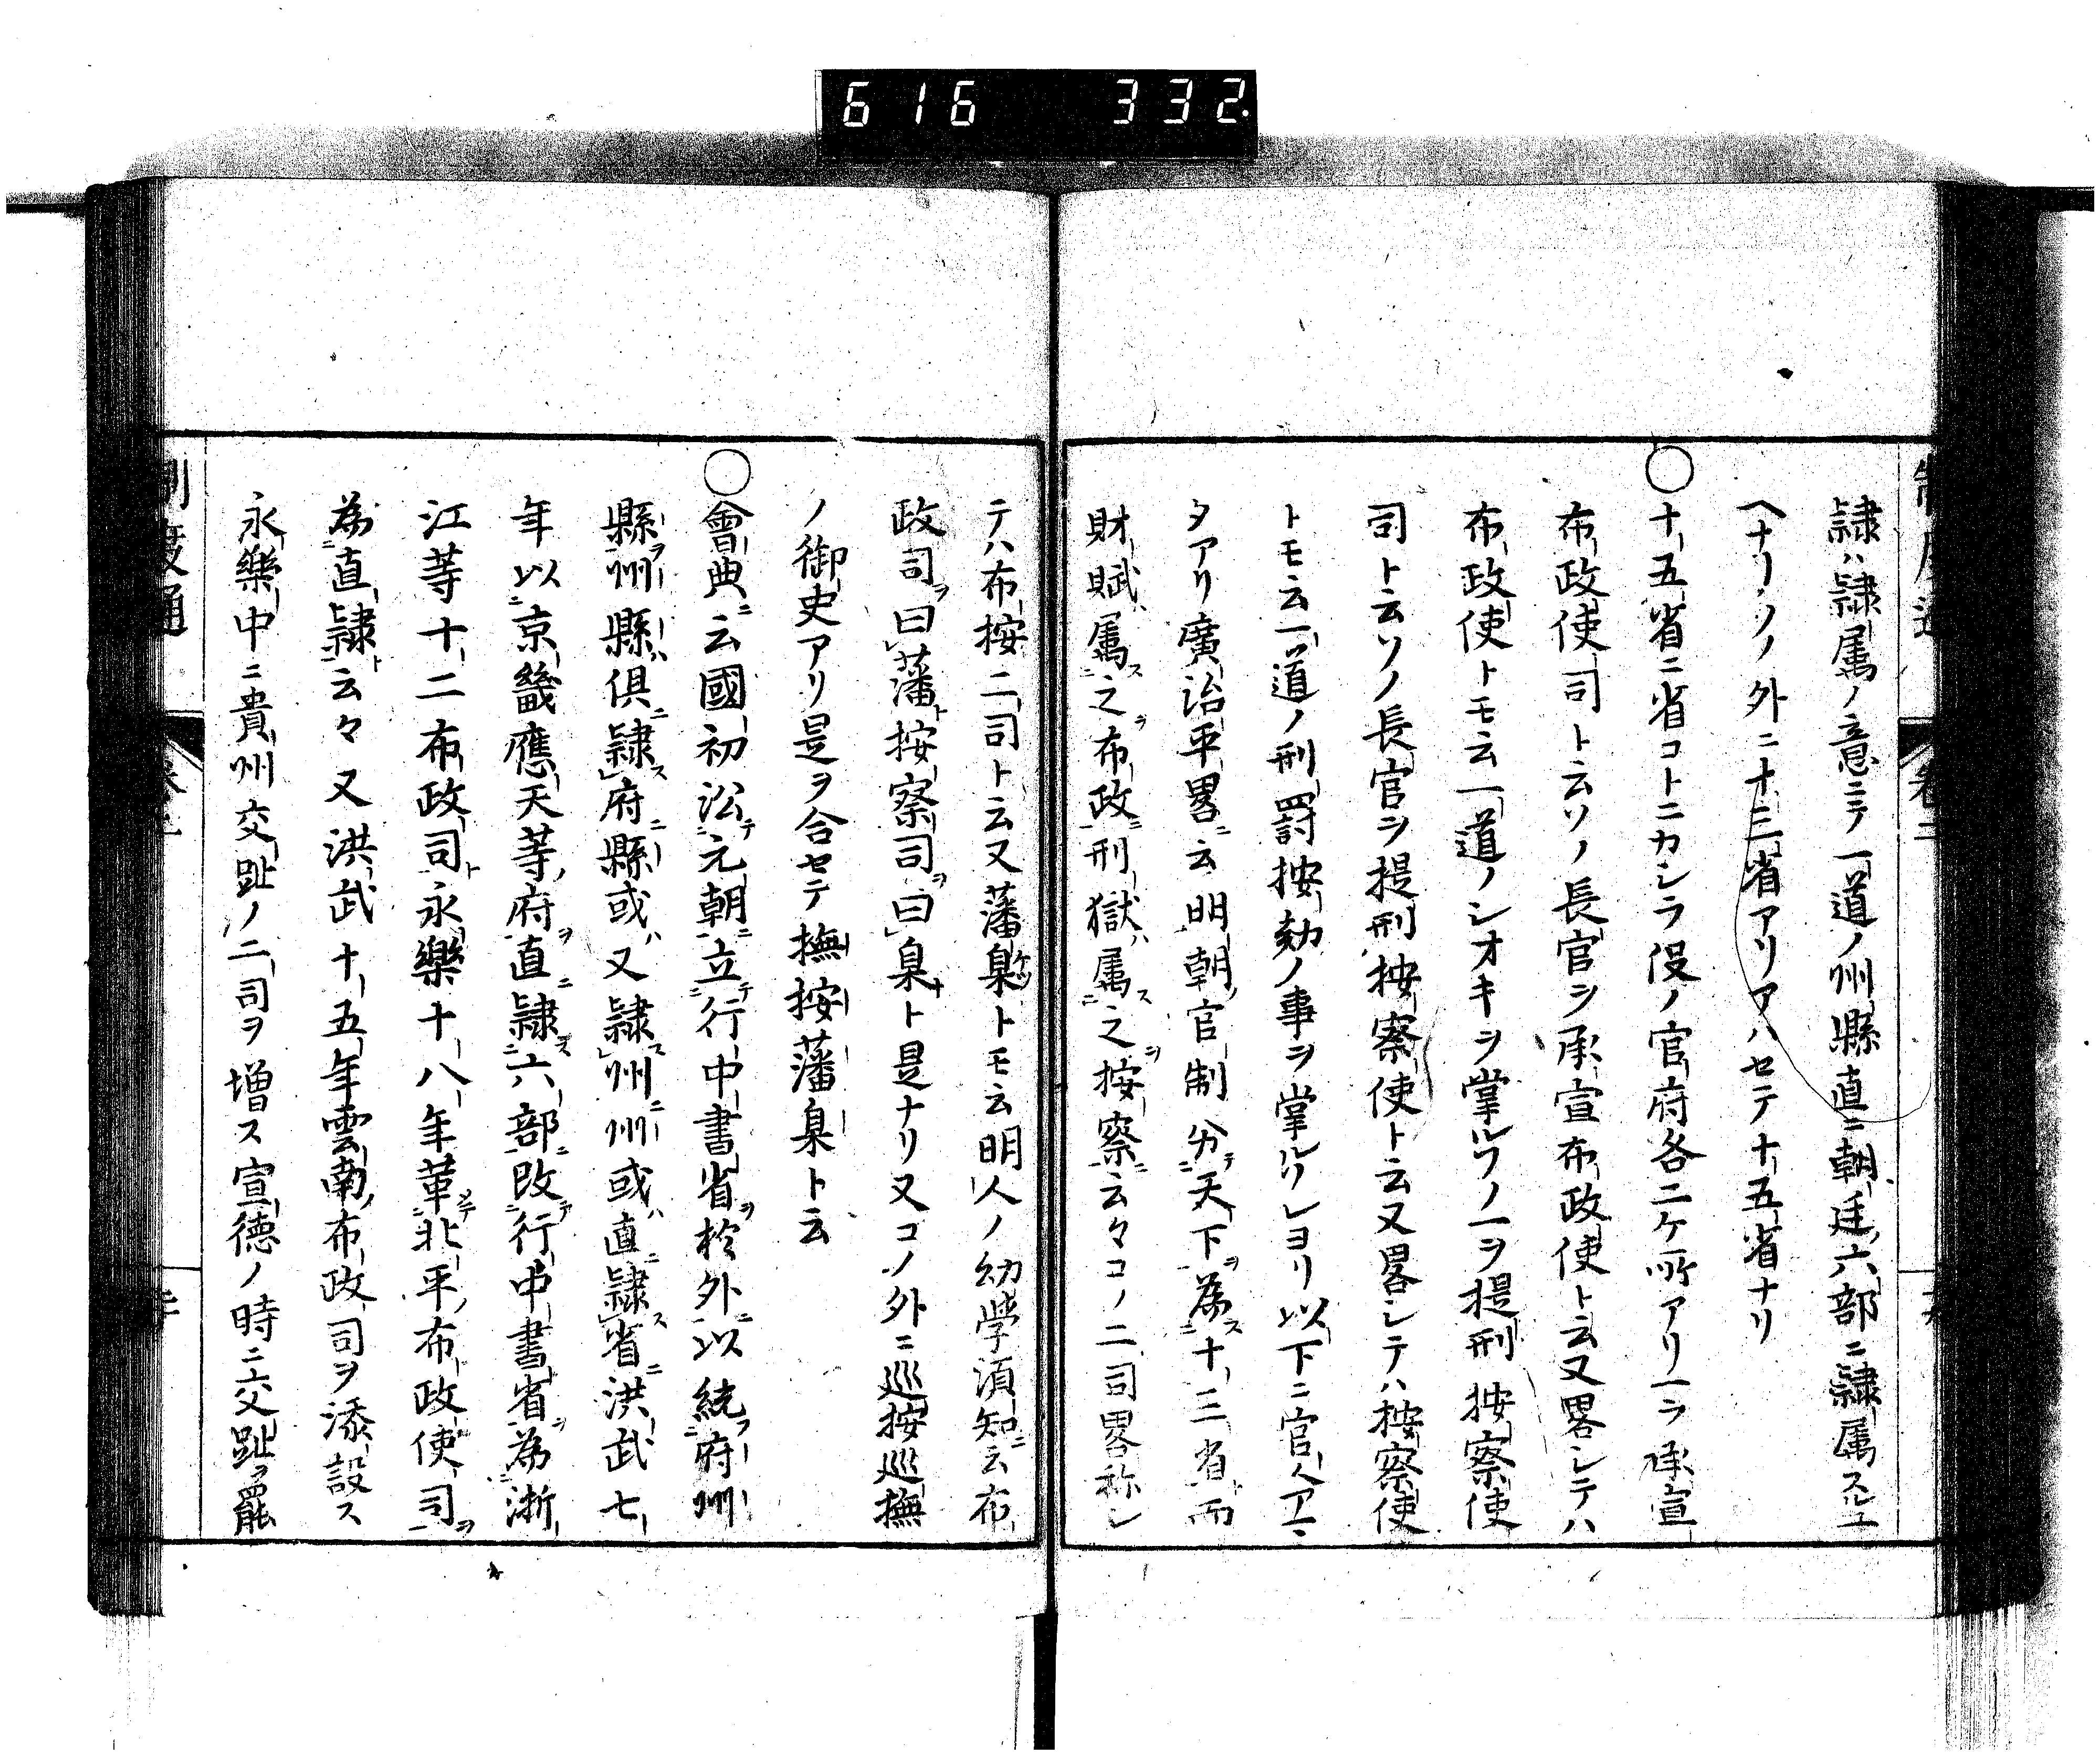 616 332
隷ハ隷属ノ意ニテ一道ノ州縣直ニ朝廷六部ニ隷属スルユ
ヘナリソノ外ニ十三省アリアハセテ十五省ナリ
○十五省ニ省コトニカシラ役ノ官府各二ケ所アリ一ヲ承宣
布政使司ト云ソノ長官ヲ承宣布政使ト云又畧シテハ
布政使トモ云一道ノシオキヲ掌ルソノ一ヲ提刑按察使
司ト云ソノ長官ヲ提刑按察使ト云又畧シテハ按察使
トモ云一道ノ刑罰按劾ノ事ヲ掌ルソレヨリ以下ニ官人アマ
タアリ廣治平畧ニ云明朝官制分天下為十三省而
財賦属之布政刑獄属之按察云々コノ二司畧称シ
テハ布按二司ト云又藩臬トモ云明人ノ幼學須知云布
政司曰藩按察司曰臬ト是ナリ又コノ外ニ巡按巡撫
ノ御史アリ是ヲ合セテ撫按藩臬ト云
○會典云國初㳂元朝立行中書省於外以統府州
縣州縣俱隷府縣或又隷州州或直隷省洪武七
年以京畿應天等府直隷六部改行中書省為浙
江等十二布政司永樂十八年革北平布政使司
為直隷云々又洪武十五年雲南布政司ヲ添設ス
永樂中ニ貴州交趾ノ二司ヲ増ス宣徳ノ時ニ交趾ヲ罷
制度通